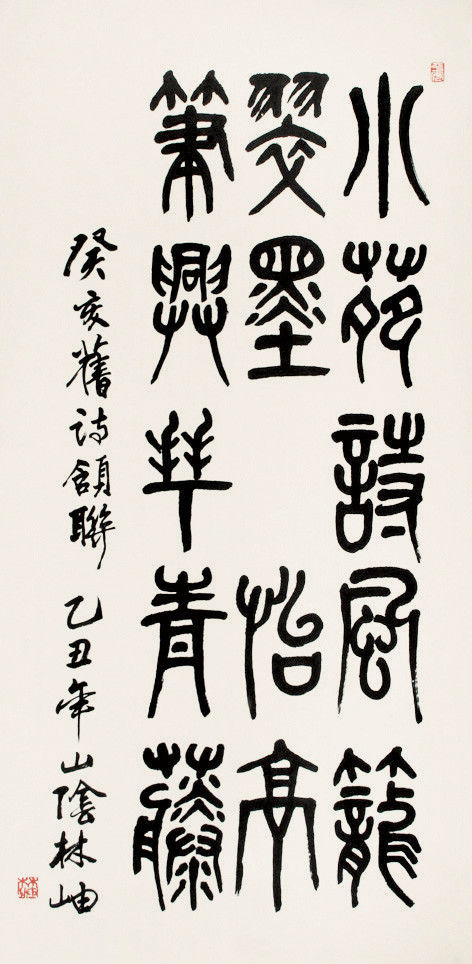 小苑詩風籠
翠墨 怡亭
筆興青藤
癸亥舊詩頷聯 乙丑年山陰林岫